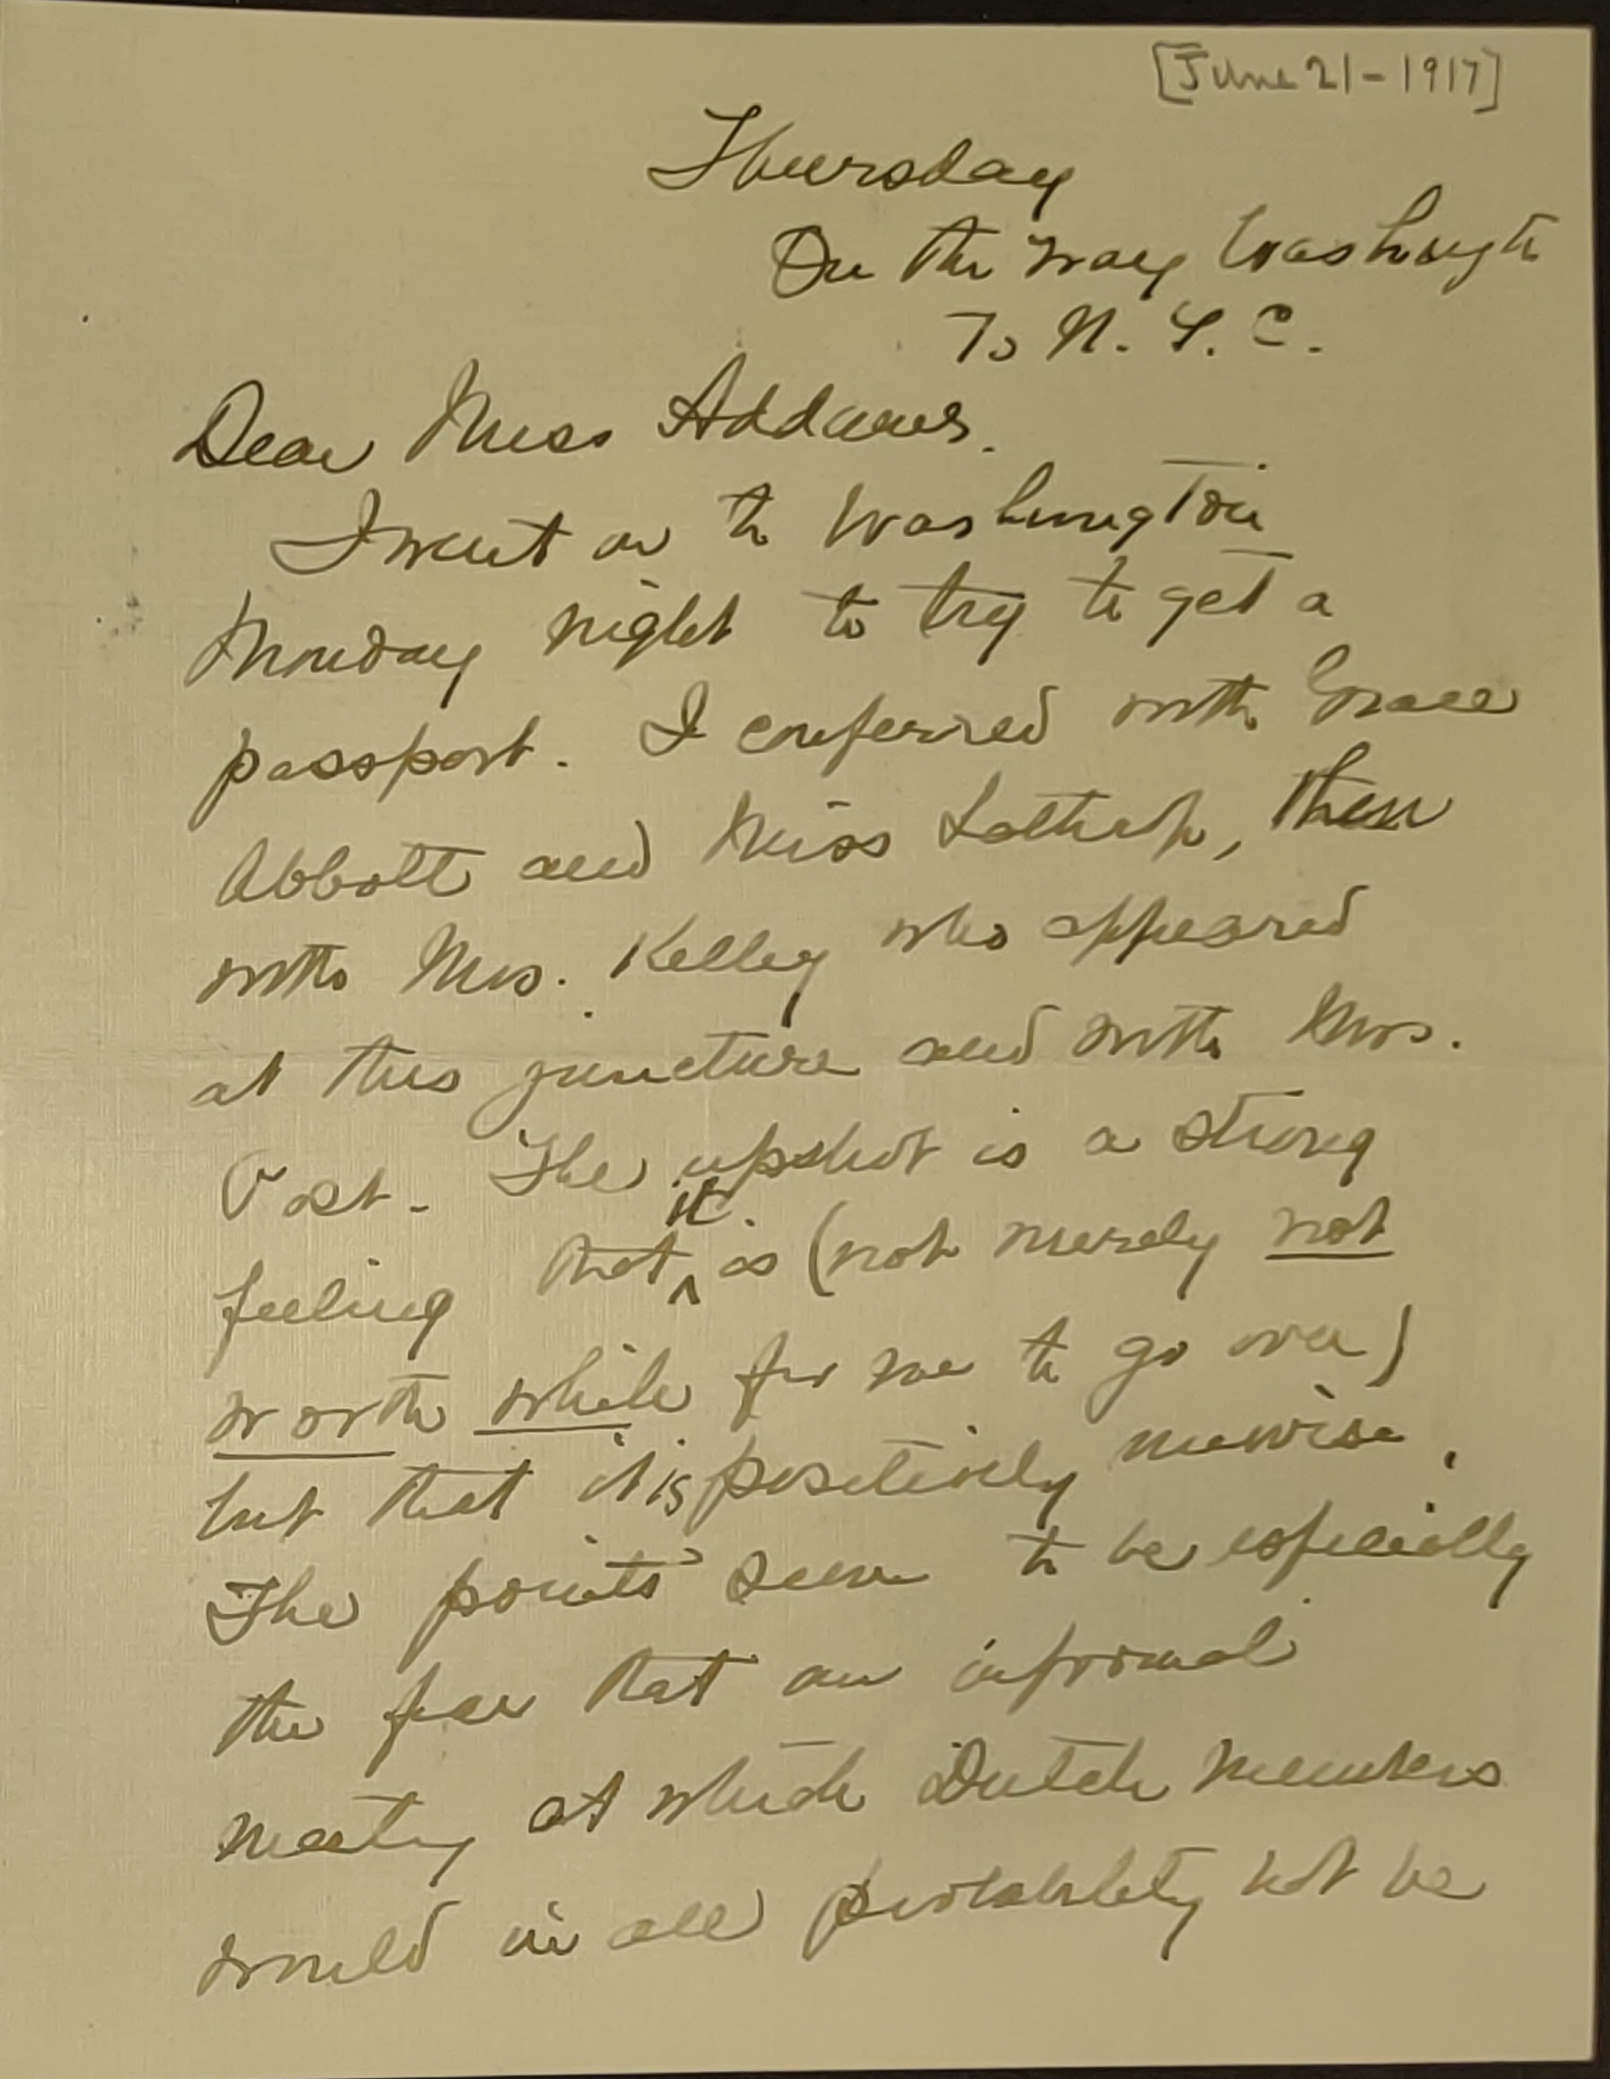 [June 21-1917]
Thursday
On the way Washingt
To N.Y.C.
Dear Miss Addams.
I went on to Washington
Monday night to try to get a
passport. I conferred with Grace
Abbott and Miss Lathrop, then
with Mrs. Kelley who appeared
at this juncture and with Mrs.
Post. The upshot is a strong
feeling that ^it^ is (not merely not
worth while for me to go over)
but that it is positively unwise.
The points seem to be especially
the fear that an informal
meeting at which Dutch members
would in all probability not be